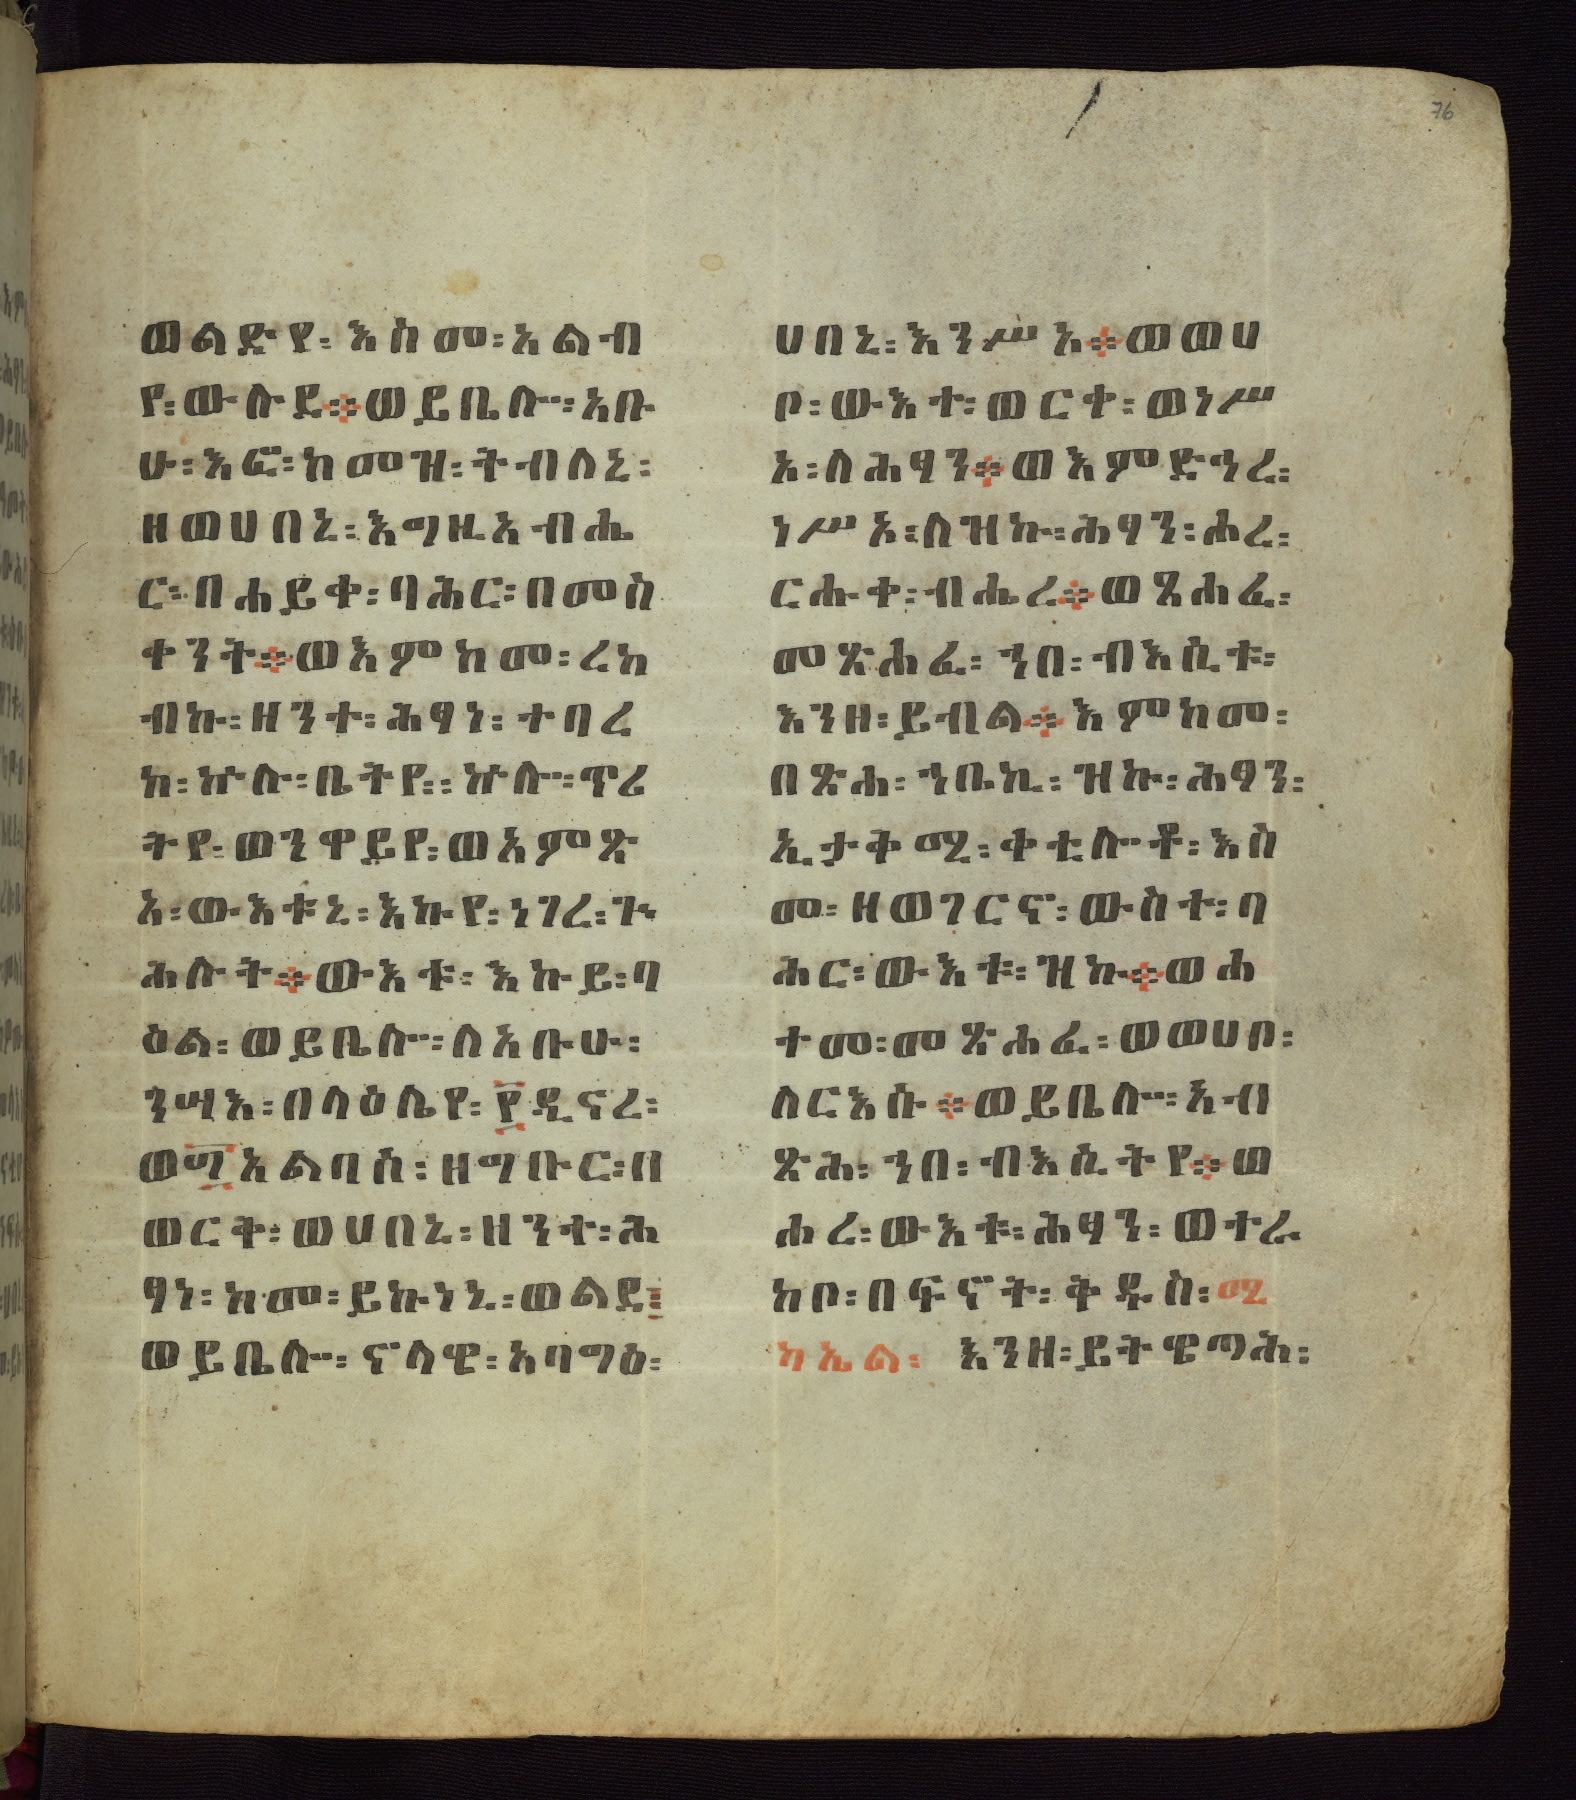 76
ወልድየ፡ እስመ፡ አልብ
የ፡ ውሉደ፨ ወይቤሎ፡ አቡ
ሁ፡ እፎ፡ ከመዝ፡ ትብለኒ፡
ዘወሀበኒ፡ እግዚአብሔ
ር፡ በሐይቀ፡ ባሕር፡ በመስ
ቀንት፨ ወእምከመ፡ ረከ
ብኩ፡ ዘንተ፡ ሕፃነ፡ ተባረ
ከ፡ ኵሉ፡ ቤትየ፡ ኵሎ፡ ጥሪ
ትየ፡ ወንዋይየ፡ ወአምጽ
አ፡ ውእቱኒ፡ እኩየ፡ ነገረ፡ ጉ
ሕሉት፨ ውእቱ፡ እኩይ፡ ባ
ዕል፡ ወይቤሎ፡ ለአቡሁ፡
ንሣእ፡ በላዕሌየ፡ ፳ዲናረ፡
ወ፵አልባሰ፡ ዘግቡር፡ በ
ወርቅ፡ ወሀበኒ፡ ዘንተ፡ ሕ
ፃነ፡ ከመ፡ ይኩነኒ፡ ወልደ፡
ወይቤሎ፡ ኖላዊ፡ አባግዕ፡
ሀበኒ፡ እንሥአ፨ ወወሀ
ቦ፡ ውእተ፡ ወርቀ፡ ወነሥ
አ፡ ለሕፃን፨ ወእምድኅረ፡
ነሥአ፡ ለዝኩ፡ ሕፃን፡ ሐረ፡
ርሑቀ፡ ብሔረ፨ ወጸሐፈ፡
መጽሐፈ፡ ኀበ፡ ብእሲቱ፡
እንዘ፡ ይብል፨ እምከመ፡
በጽሐ፡ ኀቤኪ፡ ዝኩ፡ ሕፃን፡
ኢታቅሚ፡ ቀቲሎቶ፡ እስ
መ፡ ዘወገርኖ፡ ውስተ፡ ባ
ሕር፡ ውእቱ፡ ዝኩ፨ ወሐ
ተመ፡ መጽሐፈ፡ ወወሀቦ፡
ለርእሱ፨ ወይቤሎ፡ አብ
ጽሕ፡ ኀበ፡ ብእሲትየ፨ ወ
ሐረ፡ ውእቱ፡ ሕፃን፡ ወተራ
ከቦ፡ በፍኖት፡ ቅዱስ፡ ሚ
ካኤል፡ እንዘ፡ ይትዌጣሕ፡